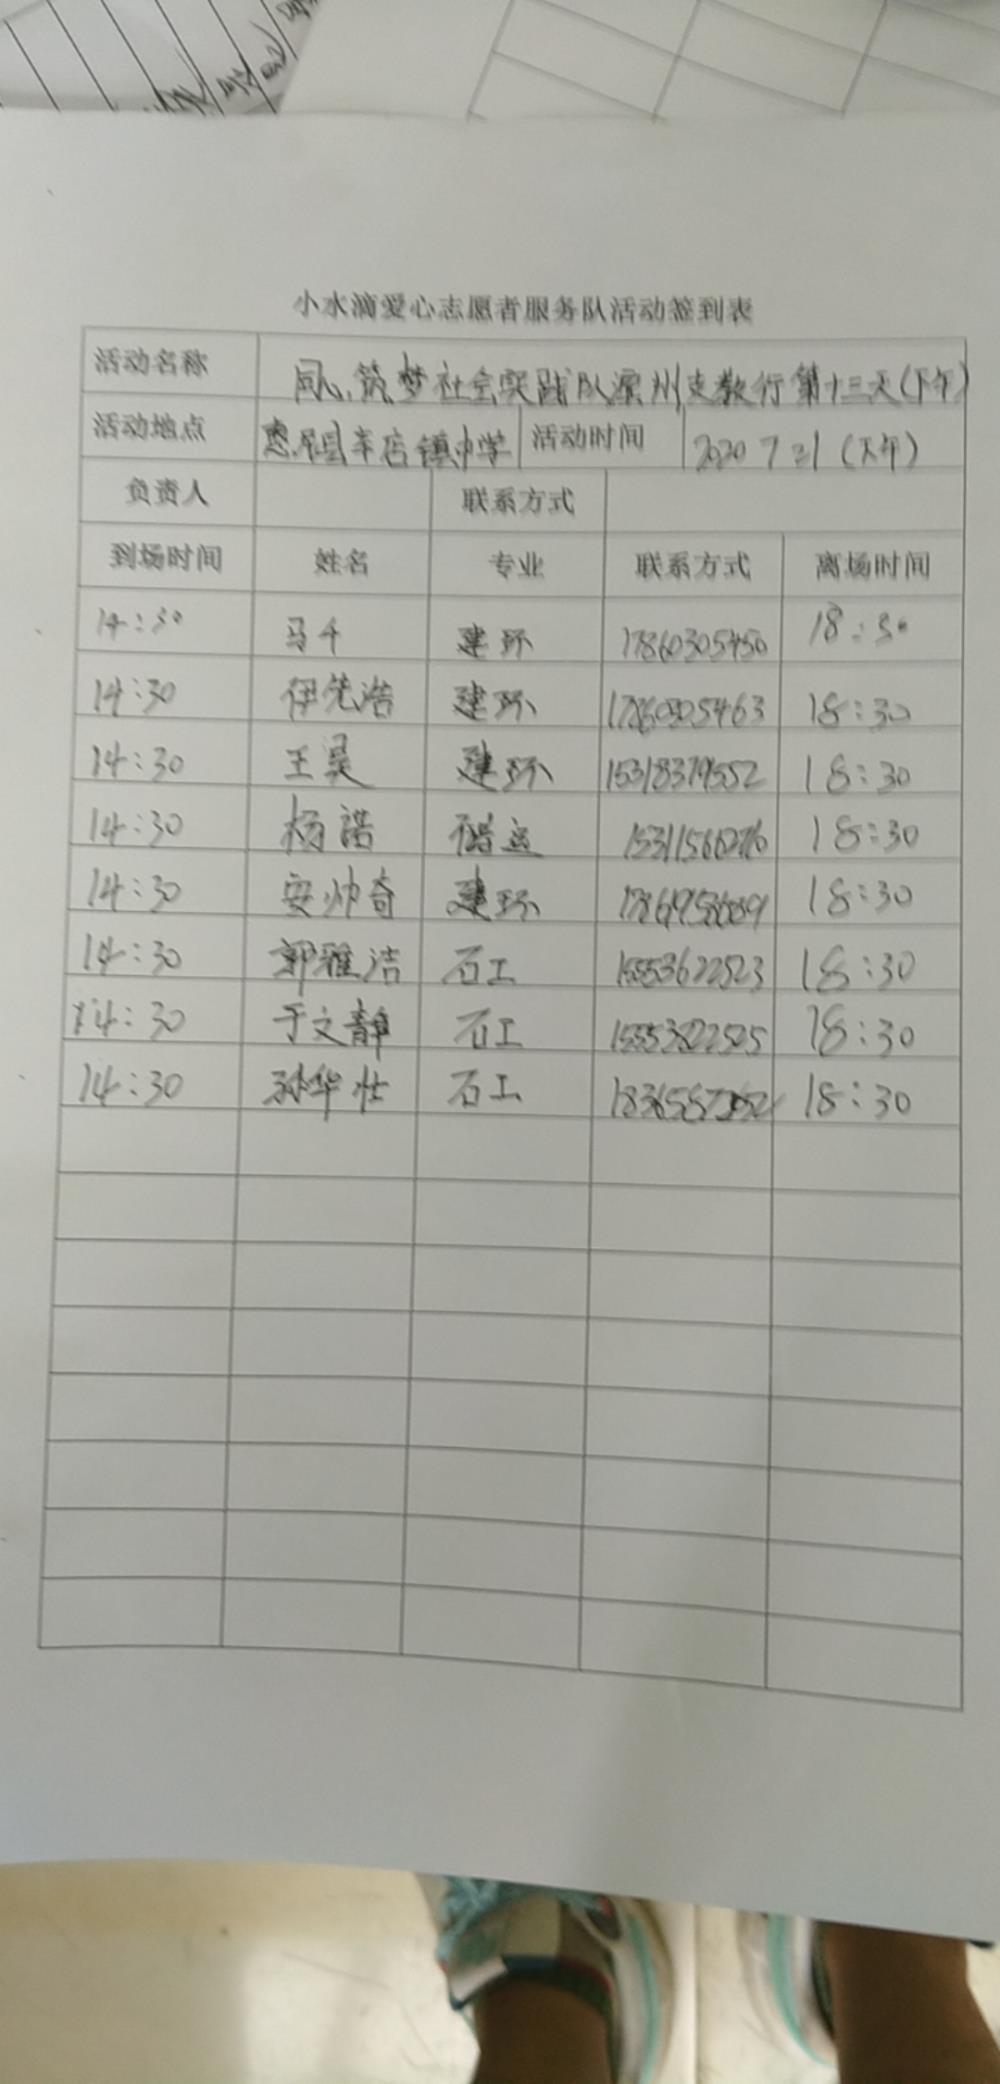 小水滴爱心志愿者服务队活动签到表
活动名称 同心筑梦社会实践队滨州支教行第十三天(下午)
活动地点 惠民县辛店镇中学 活动时间 2020 7 21 (下午)
负责人 联系方式
到场时间 姓名 专业 联系方式 离场时间
14:30 马千 建环 17860305450 18:30
14:30 伊先浩 建环 17860305463 18:30
14:30 王昊 建环 15318379552 18:30
14:30 杨诺 储运 18:30
14:30 安帅奇 建环 18:30
14:30 郭雅洁 石工 15553622523 18:30
14:30 于文静 石工 18:30
14:30 孙华壮 石工 18:30